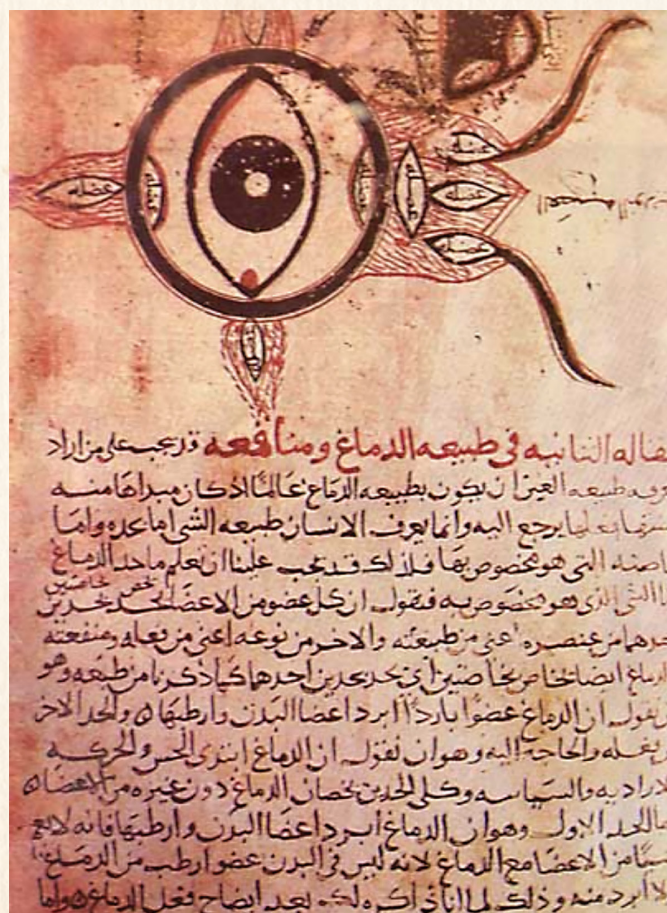 عضله
عضله
عضله
عضله
عضله
عضله
عضله
عضله
العصبه
ـقاله الثانيه فى طبيعه الدماغ ومنافعه قد يجب على من اراد
ـرفه طبيعه العين ان يكون بطبيعه الدماغ عالمًا اذ كان مبداها منه
يرجع اليه وانما يعرف الانسان طبيعه الشى اما بحده واما
ـاصته التى هو مخصوص بها فلذلك قد يجب علينا ان نعلم ما حد الدماغ
يخص بخاصتين
الشى الذى هو مخصوص به فنقول ان كل عضو من الاعضا يحد بحدين
ـدهما من عنصره اعنى من طبيعته والاخر من نوعه اعنى من فعله ومنفعته
ـالدماغ ايضا خاص بخاصتين اى يحد بحدين احدهما كما ذكرنا من طبعه وهو
نقول ان الدماغ عضوًا باردًا ابرد اعضا البدن وارطبها والحد الاخر
فعله والحاجه اليه وهو ان نقول ان الدماغ ابتدى الحس والحركه
ـلاراديه والسياسه وكلى الحدين يخصان الدماغ دون غيره من الاعضا
ـما الحد الاول وهو ان الدماغ ابرد اعضا البدن وارطبها فانه لا يعم
شيئًا من الاعضا مع الدماغ لانه ليس فى البدن عضو ارطب من الدماغ
ولا ابرد منه وذلك لما انا ذاكره لك بعد ايضاح فعل الدماغ واما